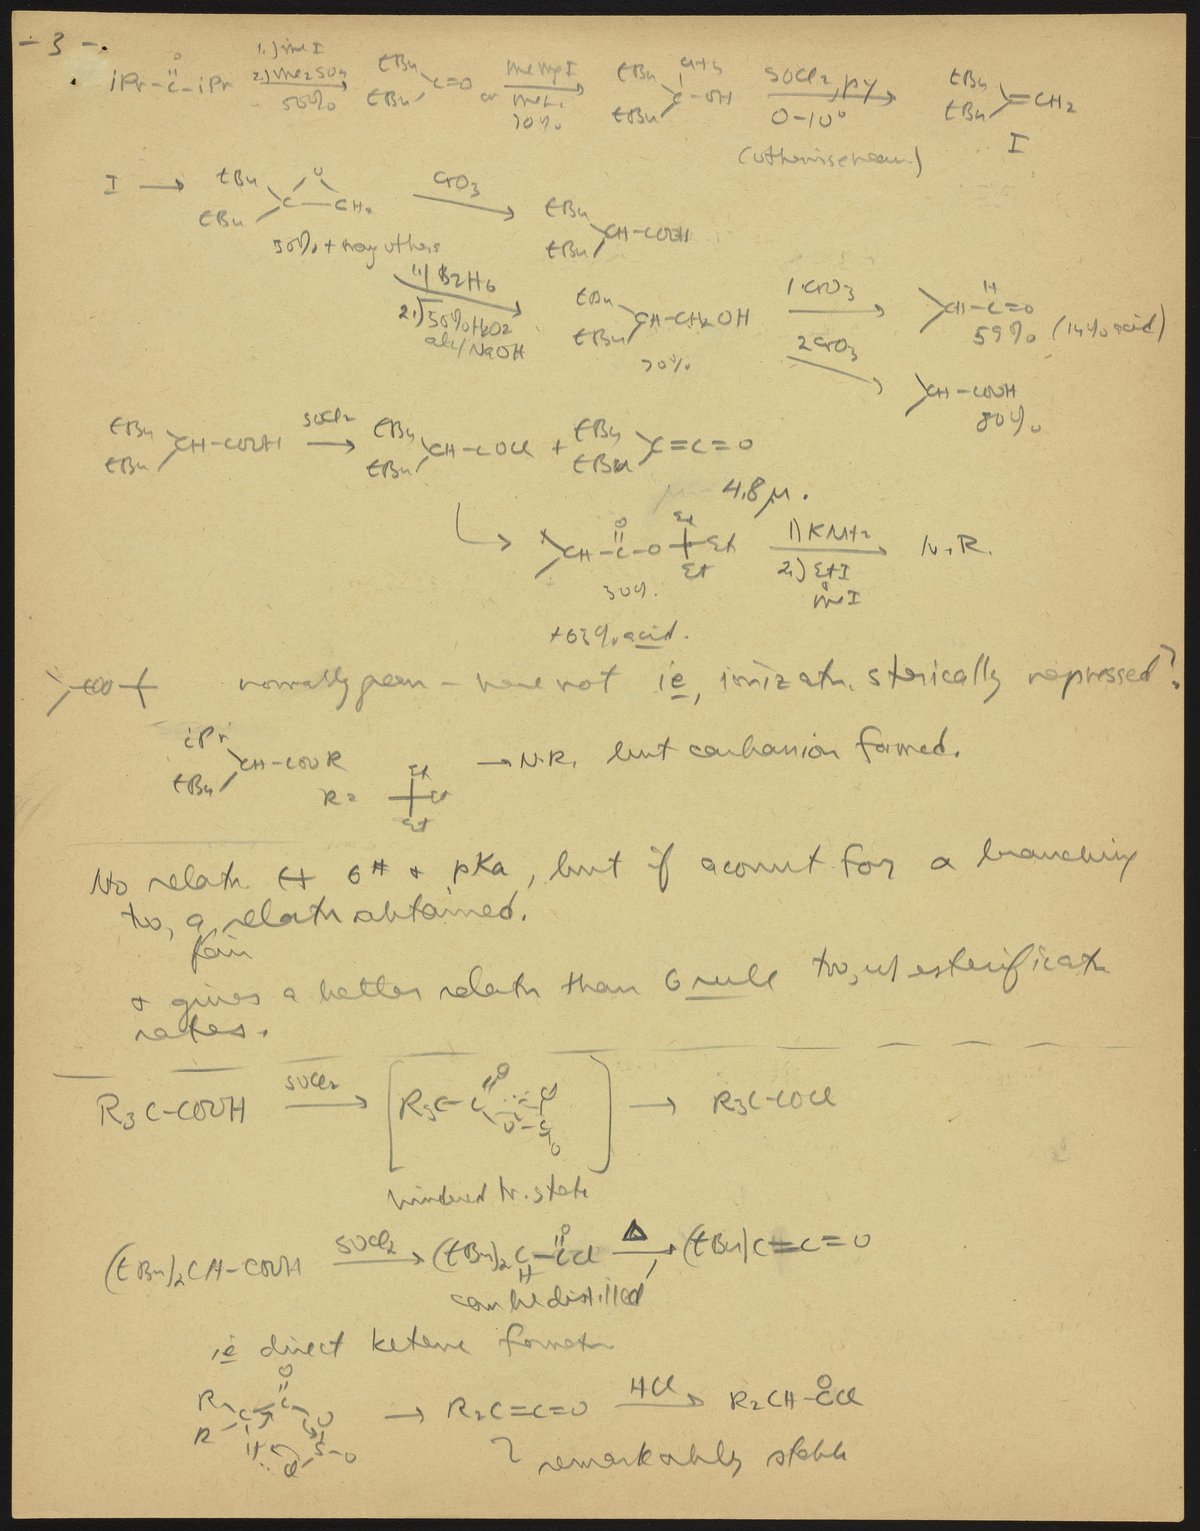 - 3 -
iPr-C(=O)-iPr 1.) MeI 2.) Me2SO4 50% → tBu tBu C=O MeMgI or MeLi 70% → tBu tBu C(CH3)-OH SOCl2, py 0-10° → tBu tBu C=CH2
I
I → tBu tBu C-O-CH2 CrO3 → tBu tBu CH-COOH
50% + many others
1) B2H6 2.) 50% H2O2 alc/NaOH → tBu tBu CH-CH2OH 1. CrO3 → CH-C(H)=O 59% (14% acid)
70% 2 CrO3 → CH-COOH
80%
tBu tBu CH-COOH SOCl2 → tBu tBu CH-COCl + tBu tBu C=C=O
4.8 μ.
→ CH-C(=O)-O Et Et Et 1) KNH2 2.) EtI or MeI → N.R.
30%
+63% acid.
normally - here not ie, ionizatn. sterically repressed?
iPr tBu CH-COOR R = Et Et Et → N.R. but carbanion formed.
No relatn. ↔ σ* + pKa, but if account for α branching
too, a fair relatn obtained.
+ gives a better relatn than 6 rule too, w/ esterificatn
rates.
R3C-COOH SOCl2 → [R3C-C(=O) O-S Cl O] → R3C-COCl
hindered tr. state
(tBu)2CH-COOH SOCl2 → (tBu)2C(H)-C(=O)Cl Δ → (tBu)C=C=O
can be distilled
ie direct ketene formatn
R R C-C(=O) O S-O H Cl → R2C=C=O HCl → R2CH-C(=O)Cl
remarkably stable